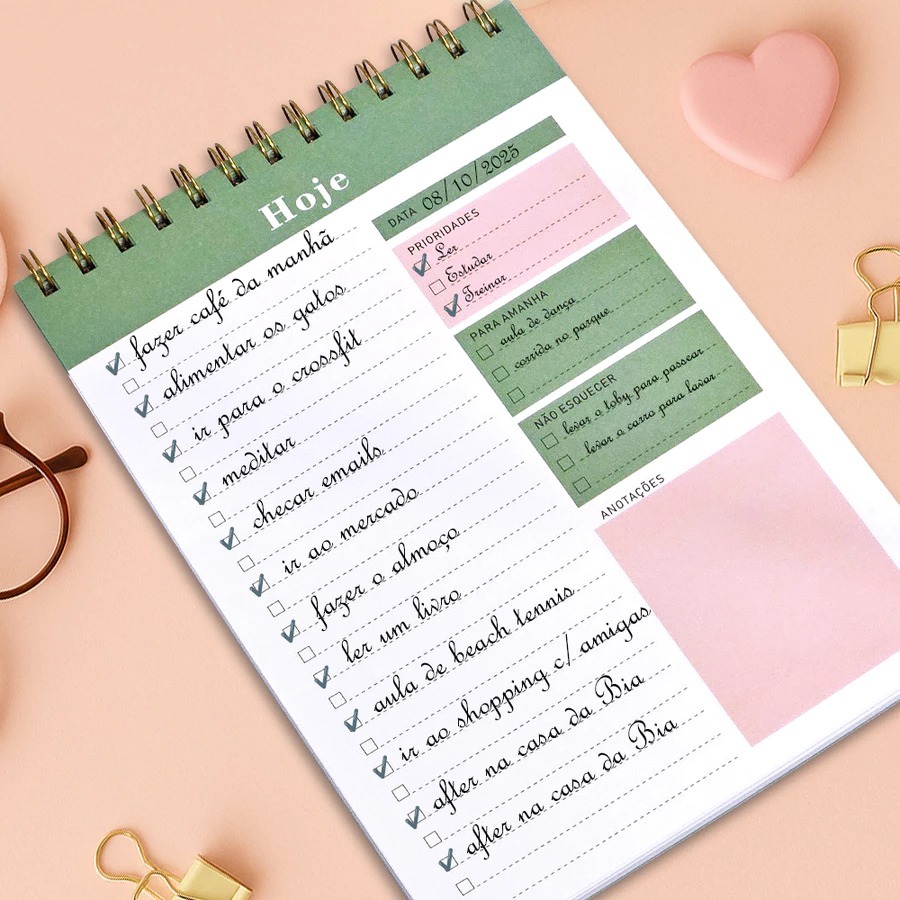 Hoje
fazer café da manhã
alimentar os gatos
ir para o crossfit
meditar
checar emails
ir ao mercado
fazer o almoço
ler um livro
aula de beach tennis
ir ao shopping c/ amigas
after na casa da Bia
after na casa da Bia
DATA 08/10/2025
PRIORIDADES
Ler
Estudar
Treinar
PARA AMANHA
aula de dança
corrida no parque
NÃO ESQUECER
levar o toby para passear
levar o carro para lavar
ANOTAÇÕES